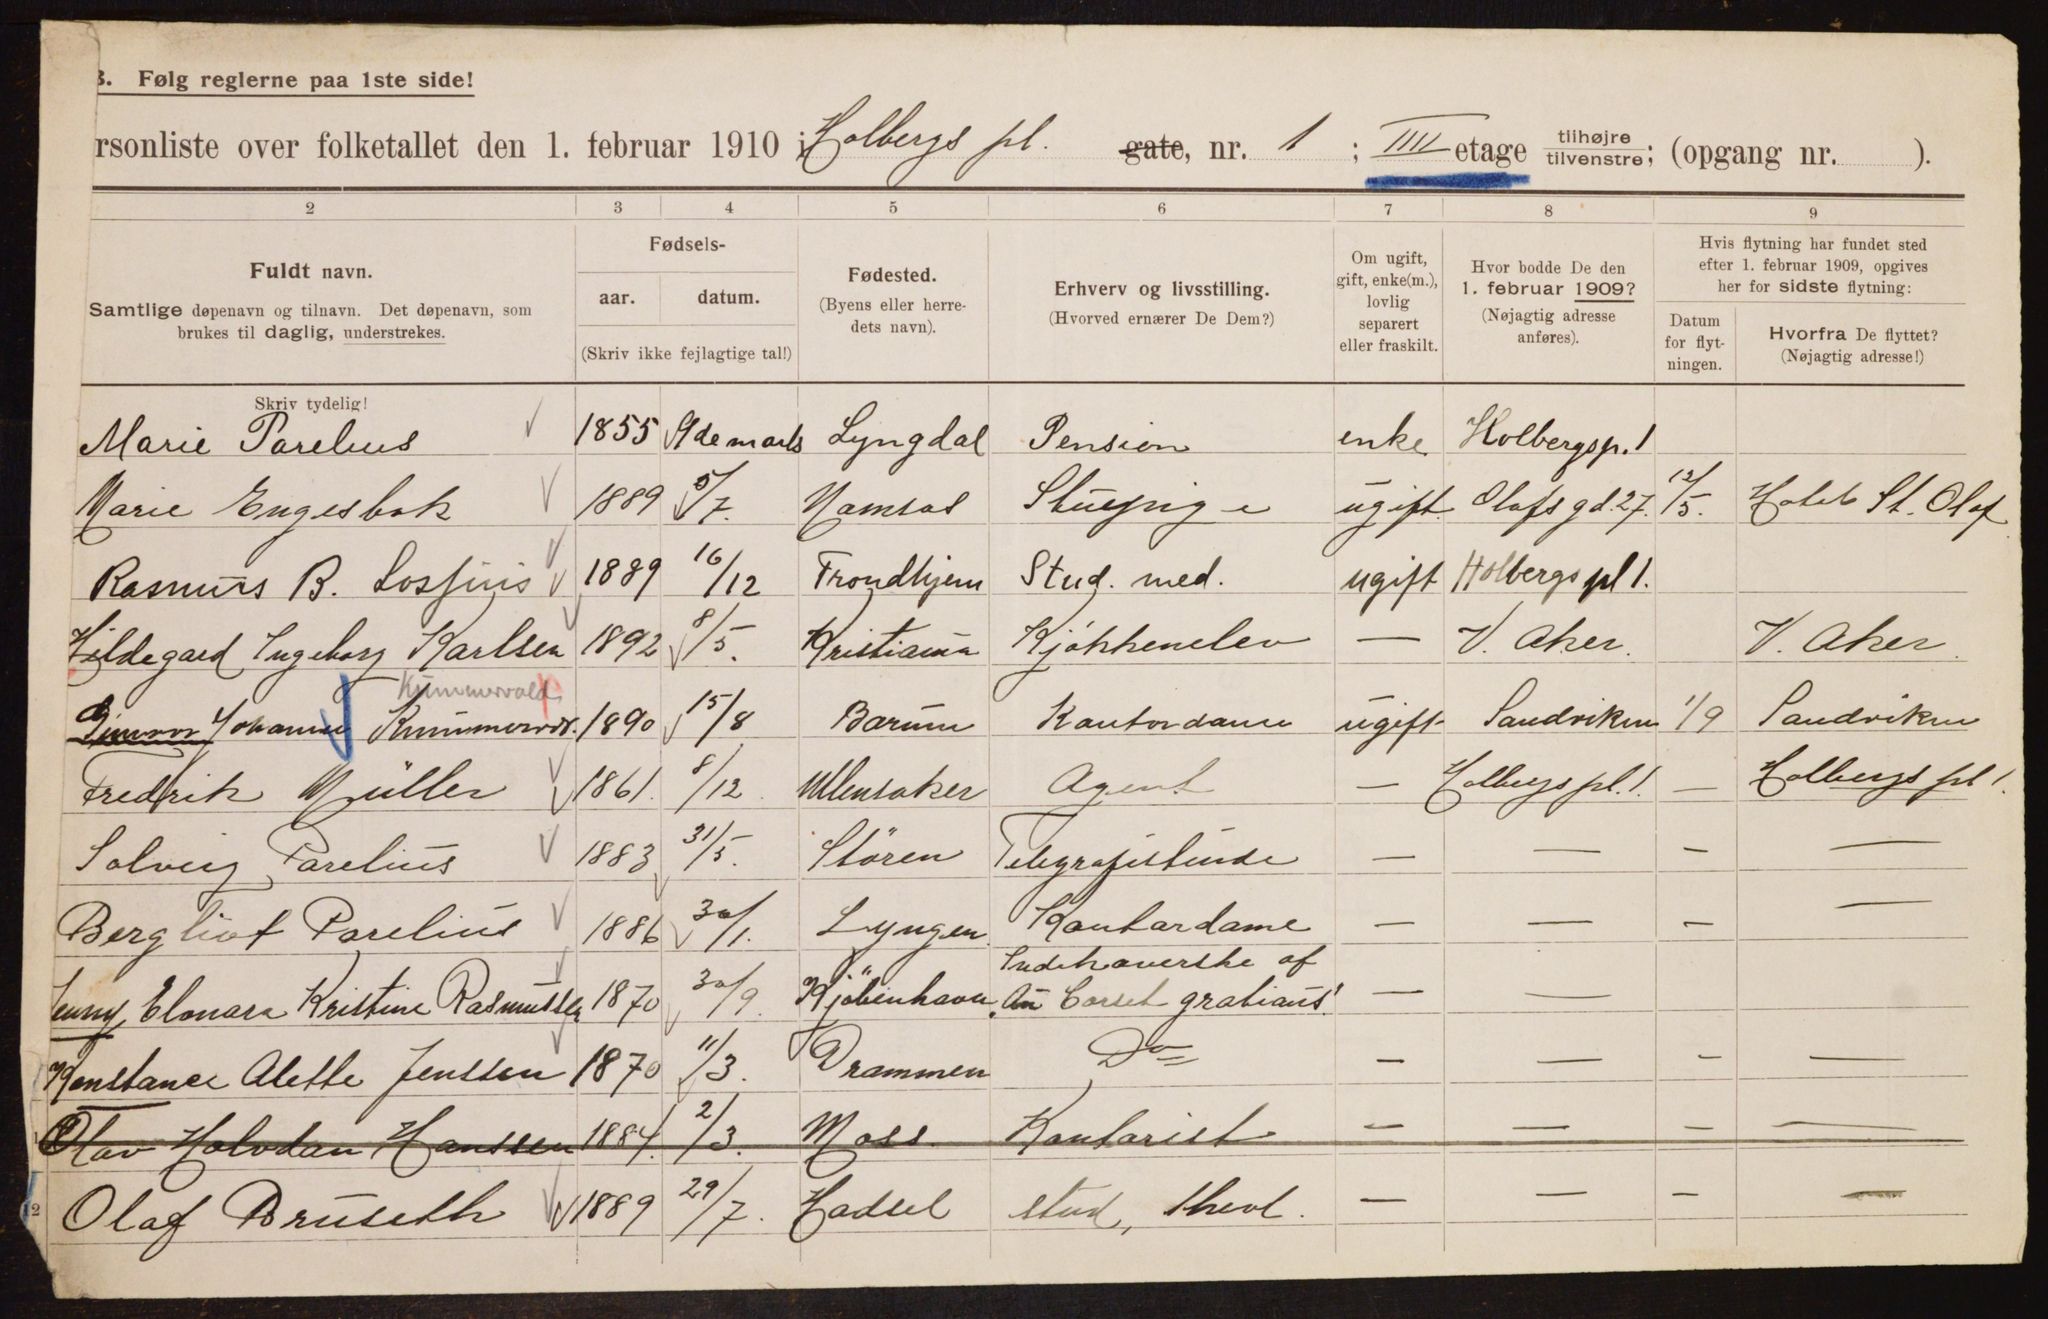 B. Følg reglerne paa 1ste side!
rsonliste over folketallet den 1. februar 1910 i Holbergs pl. gate, nr. 1 ; IIII etage tilhøjre tilvenstre; (opgang nr. ).
2 3 4 5 6 7 8 9
Fuldt navn.
Samtlige døpenavn og tilnavn. Det døpenavn, som
brukes til daglig, understrekes.
Skriv tydelig!
Fødsels-
aar. datum.
(Skriv ikke fejlagtige tal!)
Fødested.
(Byens eller herre-
dets navn).
Erhverv og livsstilling.
(Hvorved ernærer De Dem?)
Om ugift,
gift, enke(m.),
lovlig
separert
eller fraskilt.
Hvor bodde De den
1. februar 1909?
(Nøjagtig adresse
anføres).
Hvis flytning har fundet sted
efter 1. februar 1909, opgives
her for sidste flytning:
Datum
for flyt-
ningen.
Hvorfra De flyttet?
(Nøjagtig adresse!)
Marie Parelius 1855 marts Lyngdal Pension enke Holbergsp. 1
Marie Engesbak 1889 5/7. Namsos Stuepige ugift Olafsgd. 27. 12/5. Hotel St. Olaf
Rasmus B. Lossius 1889 16/12 Trondhjem Stud. med. ugift Holbergs pl 1.
Hildegard Ingeborg Karlsen 1892 8/5. Kristiania Kjökkenelev — V. Aker. V. Aker.
Kummervold
Johanne Kummervold. 1890 15/8 Barum Kontordame ugift Sandviken 1/9 Sandviken
Fredrik Müller 1861. 8/12. Ullensaker Agent — Holbergs pl. 1. — Holbergs pl 1.
Solveig Parelius 1883 31/5. Stören Telegrafistinde — — – —
Bergliot Parelius 1886 30/1. Lyngen Kontordame — — – —
Indehaverske af
Jenny Elonara Kristine Rasmussen 1870 30/9. Kjöbenhavn "Au Corset gratiaus" — —
Konstance Alette Jenssen 1870 11/3. Drammen Do — — – —
Olav Halvdan Hanssen 1884. 2/3. Moss Kontorist — — – —
12 Olaf Bruseth 1889 29/7. Hadsel stud, theol. — — – —